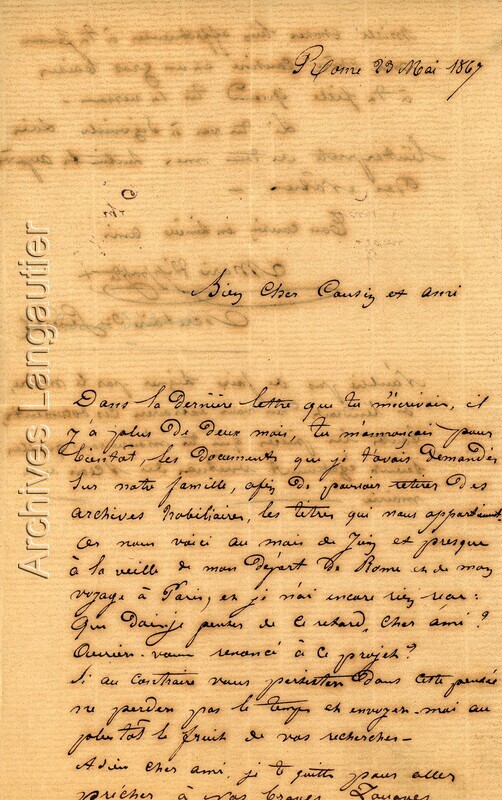 Rome 23 Mai 1867
Bien cher Cousin et ami
Dans la dernière lettre que tu m'écrivais, il
y a plus de deux mois, tu m'annonçais pour
bientot, les documents que je t'avais demandés
sur notre famille, afin de pouvoir retirer des
archives nobiliaires, les titres qui nous appartiennent
or nous voici au mois de Juin et presque
à la veille de mon départ de Rome et de mon
voyage à Paris, et je n'ai encore rien reçu:
Que dois-je penser de ce retard, cher ami?
Auriez-vous renoncé à ce projet?
Si au contraire vous persistez dans cette pensée
ne perdez pas le temps et envoyez-moi au
plus tôt le fruit de vos recherches—
Adieu cher ami, je te quitte pour aller
prêcher à nos braves Zouaves
Archives Langautier